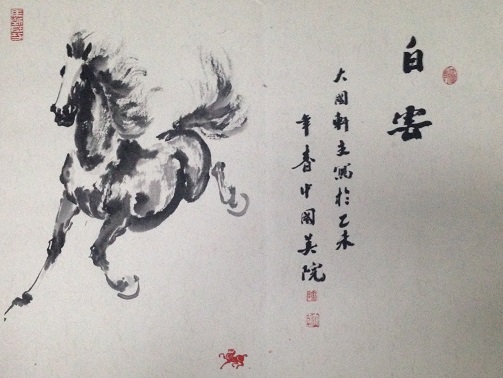 白雲
大軒主寫於乙未
年春中國美院